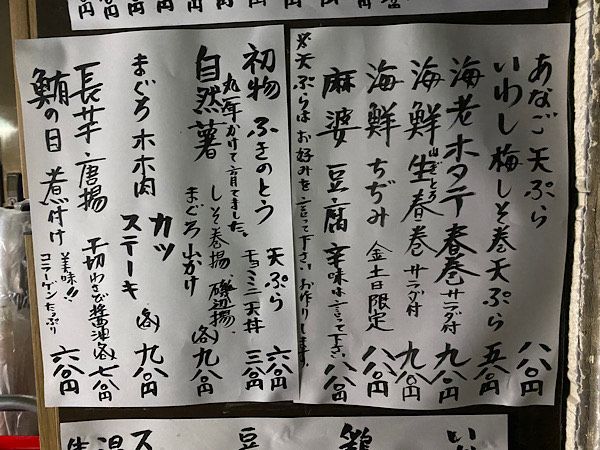 あなご天ぷら 八八〇円
いわし梅しそ巻天ぷら 五八〇円
海老ホタテ春巻サラダ付 九八〇円
海鮮生春巻サラダ付 九八〇円
海鮮ちぢみ 金土日限定 八八〇円
麻婆豆腐 辛味は言って下さい。 八八〇円
※天ぷらはお好みを言って下さい。お作りします。
初物 ふきのとう 天ぷら 六八〇円
チョコミニ天丼 三八〇円
丸一年かけて育てました。
自然薯 しそ巻揚、磯辺揚、 各九八〇円
まぐろ山かけ
まぐろホホ肉 カツ
ステーキ 各九八〇円
長芋唐揚 千切わさび醤油 各七八〇円
鮪の目煮付け 美味!!
コラーゲンたっぷり 六八〇円